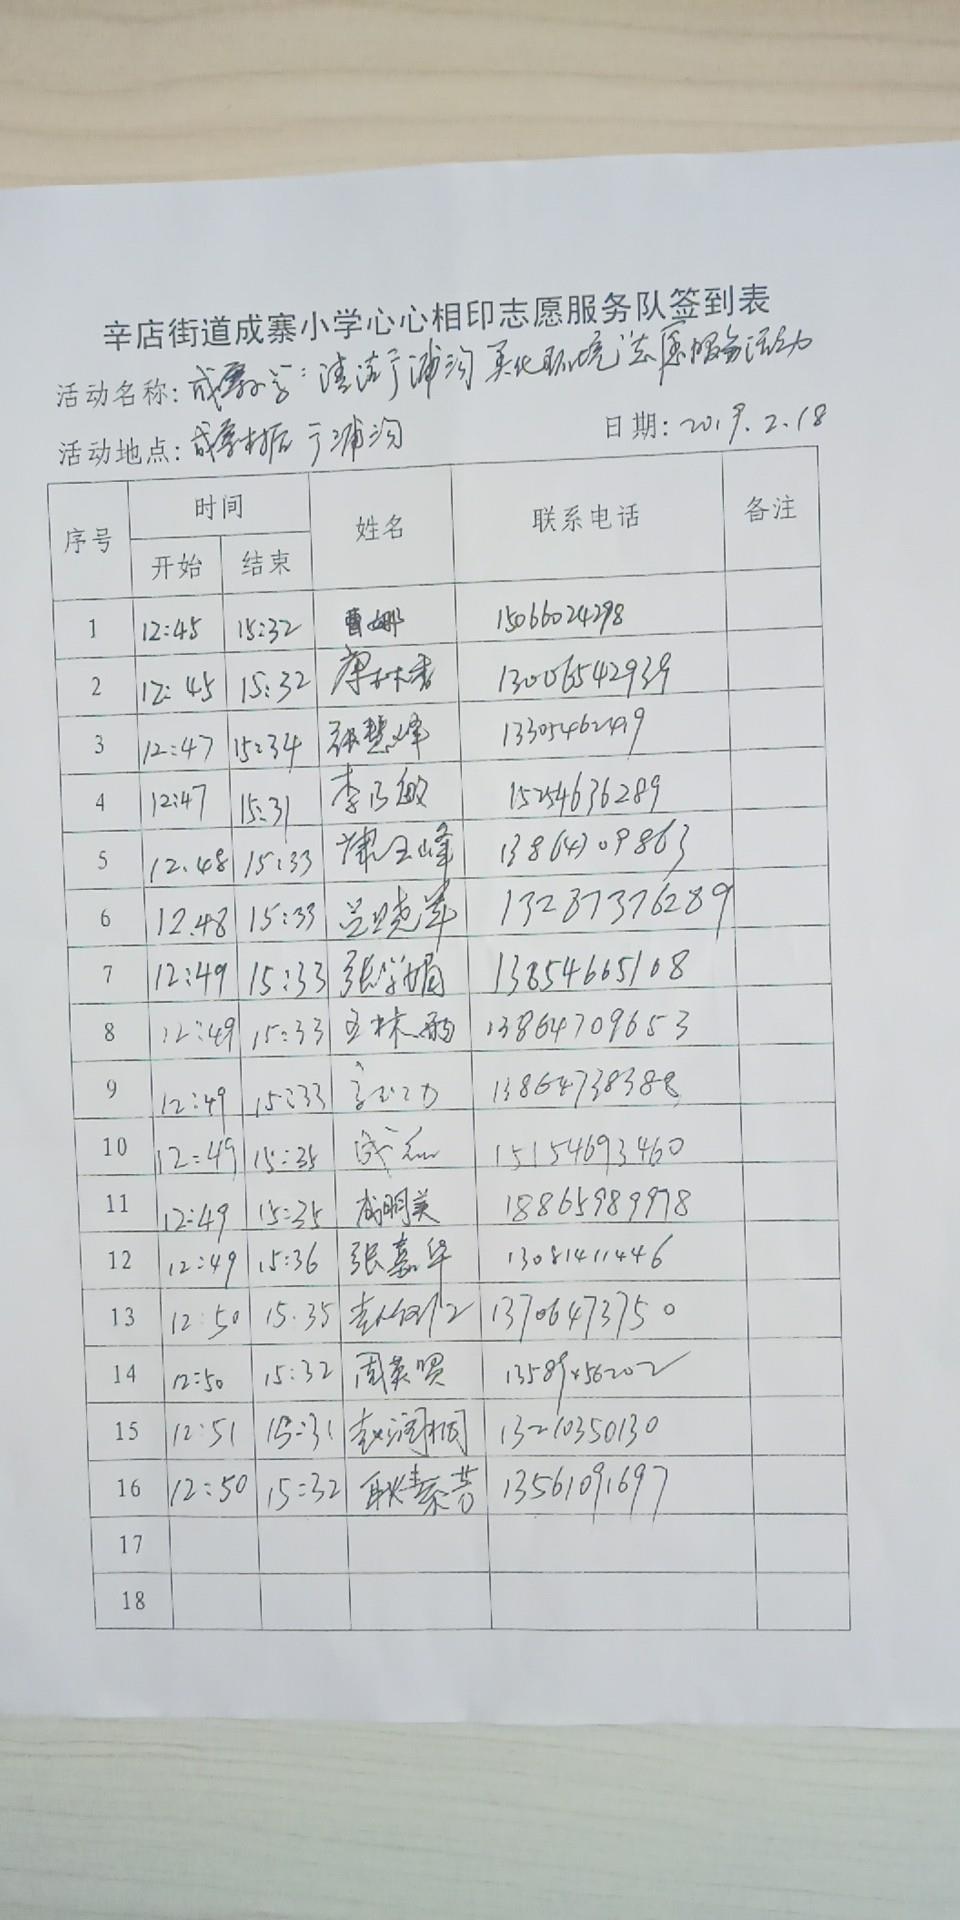 辛店街道成寨小学心心相印志愿服务队签到表
活动名称: 成寨小学"清洁广浦沟 美化环境"志愿服务活动
活动地点: 成寨村后 广浦沟 日期: 2019.2.18
序号 时间 姓名 联系电话 备注
开始 结束
1 12:45 15:32 曹娜 15066024298
2 12:45 15:32 13006542939
3 12:47 15:34 张慧峰 13305462419
4 12:47 15:31 李乃敏 15254636289
5 12.48 15:33 13864709863
6 12.48 15:33 吕晓萍 13287376289
7 12:49 15:33 张学娟 13854665108
8 12:49 15:33 王林 13864709653
9 12:49 15:33 13864738388
10 12:49 15:35 15154693460
11 12:49 15:35 成明美 18865989978
12 12:49 15:36 张嘉华 13081411446
13 12:50 15.35 13706473750
14 12:50 15:32 周英贤 13589456202
15 12:51 15:31 13210350130
16 12:50 15:32 耿素芳 13561091697
17
18